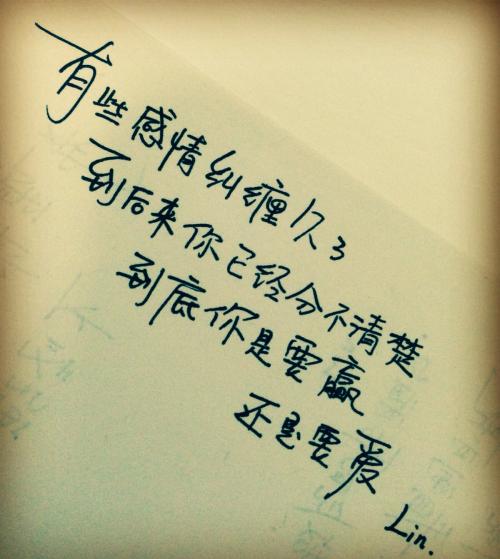 有些感情纠缠久了
到后来你已经分不清楚
到底你是要赢
还是要爱
Lin.